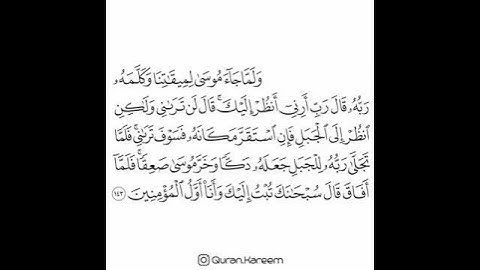 وَلَمَّا جَآءَ مُوسَىٰ لِمِيقَٰتِنَا وَكَلَّمَهُۥ
رَبُّهُۥ قَالَ رَبِّ أَرِنِىٓ أَنظُرْ إِلَيْكَ ۚ قَالَ لَن تَرَىٰنِى وَلَٰكِنِ
ٱنظُرْ إِلَى ٱلْجَبَلِ فَإِنِ ٱسْتَقَرَّ مَكَانَهُۥ فَسَوْفَ تَرَىٰنِى ۚ فَلَمَّا
تَجَلَّىٰ رَبُّهُۥ لِلْجَبَلِ جَعَلَهُۥ دَكًّا وَخَرَّ مُوسَىٰ صَعِقًا ۚ فَلَمَّآ
أَفَاقَ قَالَ سُبْحَٰنَكَ تُبْتُ إِلَيْكَ وَأَنَا۠ أَوَّلُ ٱلْمُؤْمِنِينَ ١٤٣
Quran.Kareem